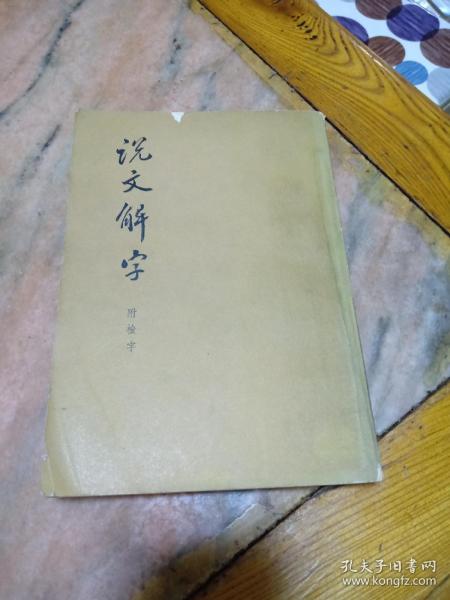 说文解字
附检字
孔夫子旧书网
www.kongfz.com